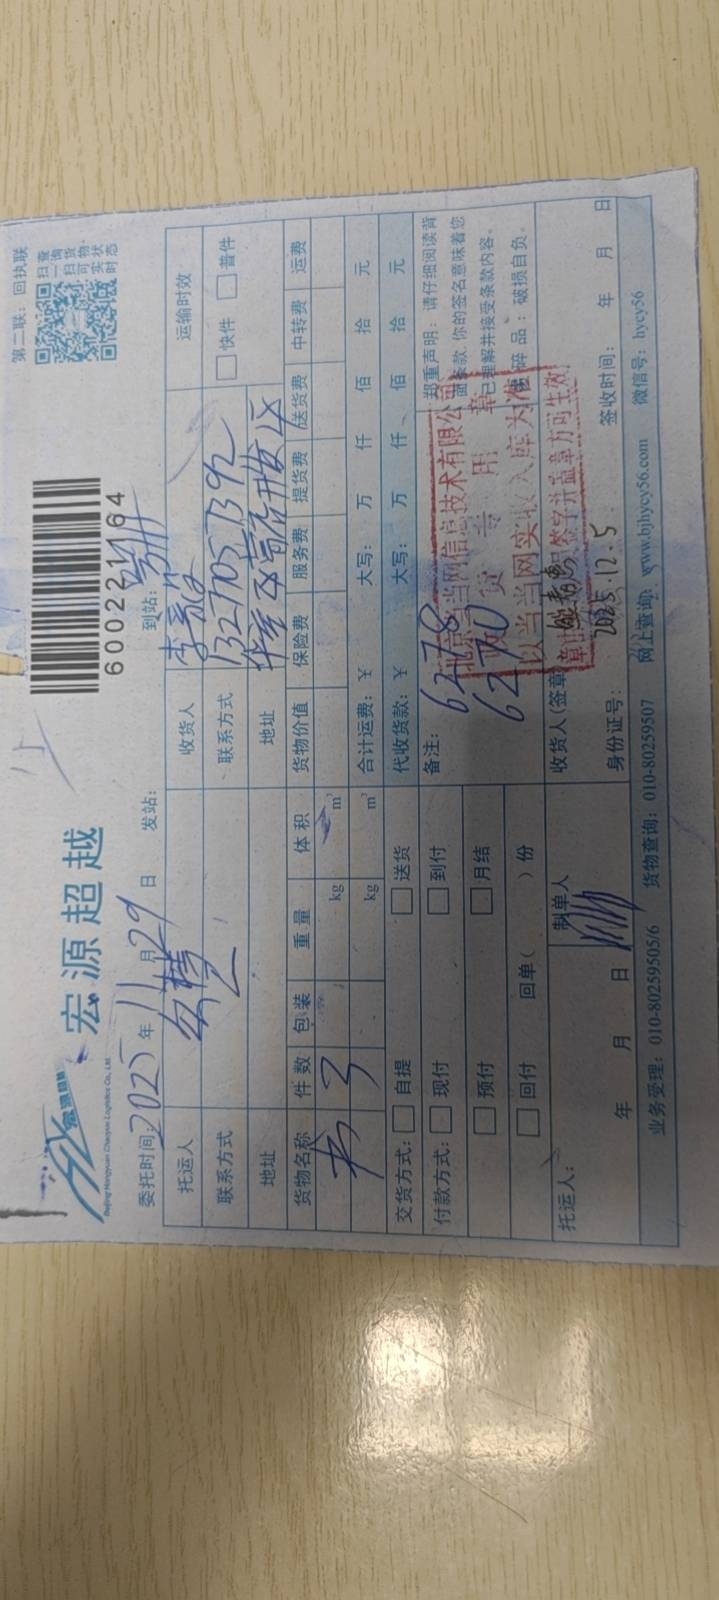 宏源超越
Beijing Hongyuan Chaoyue Logistics Co., Ltd.
600221164
第二联：回执联
扫一扫
查询货物
可实时状态
委托时间：2025年11月29日 发站： 到站：
托运人 收货人 李 运输时效
联系方式 联系方式 13277057392 快件 普件
地址 地址
货物名称 件数 包装 重量 体积 货物价值 保险费 服务费 提货费 送货费 中转费 运费
书 3 kg m³
kg m³ 合计运费：¥ 大写： 万 仟 佰 拾 元
交货方式： 自提 送货 代收货款：¥ 大写： 万 仟 佰 拾 元
付款方式： 现付 到付 备注： 6278
预付 月结 6270
回付 回单（ ）份
郑重声明：请仔细阅读背
面条款，你的签名意味着您
已理解并接受条款内容。
碎品：破损自负。
北京当当网信息技术有限公司
收货专用章
以当当网实收入库为准
签字并盖章方可生效
托运人： 制单人 收货人（签章）
2025.12.5
年 月 日 身份证号： 签收时间： 年 月 日
业务受理：010-80259505/6 货物查询：010-80259507 网上查询：www.bjhycy56.com 微信号：hycy56